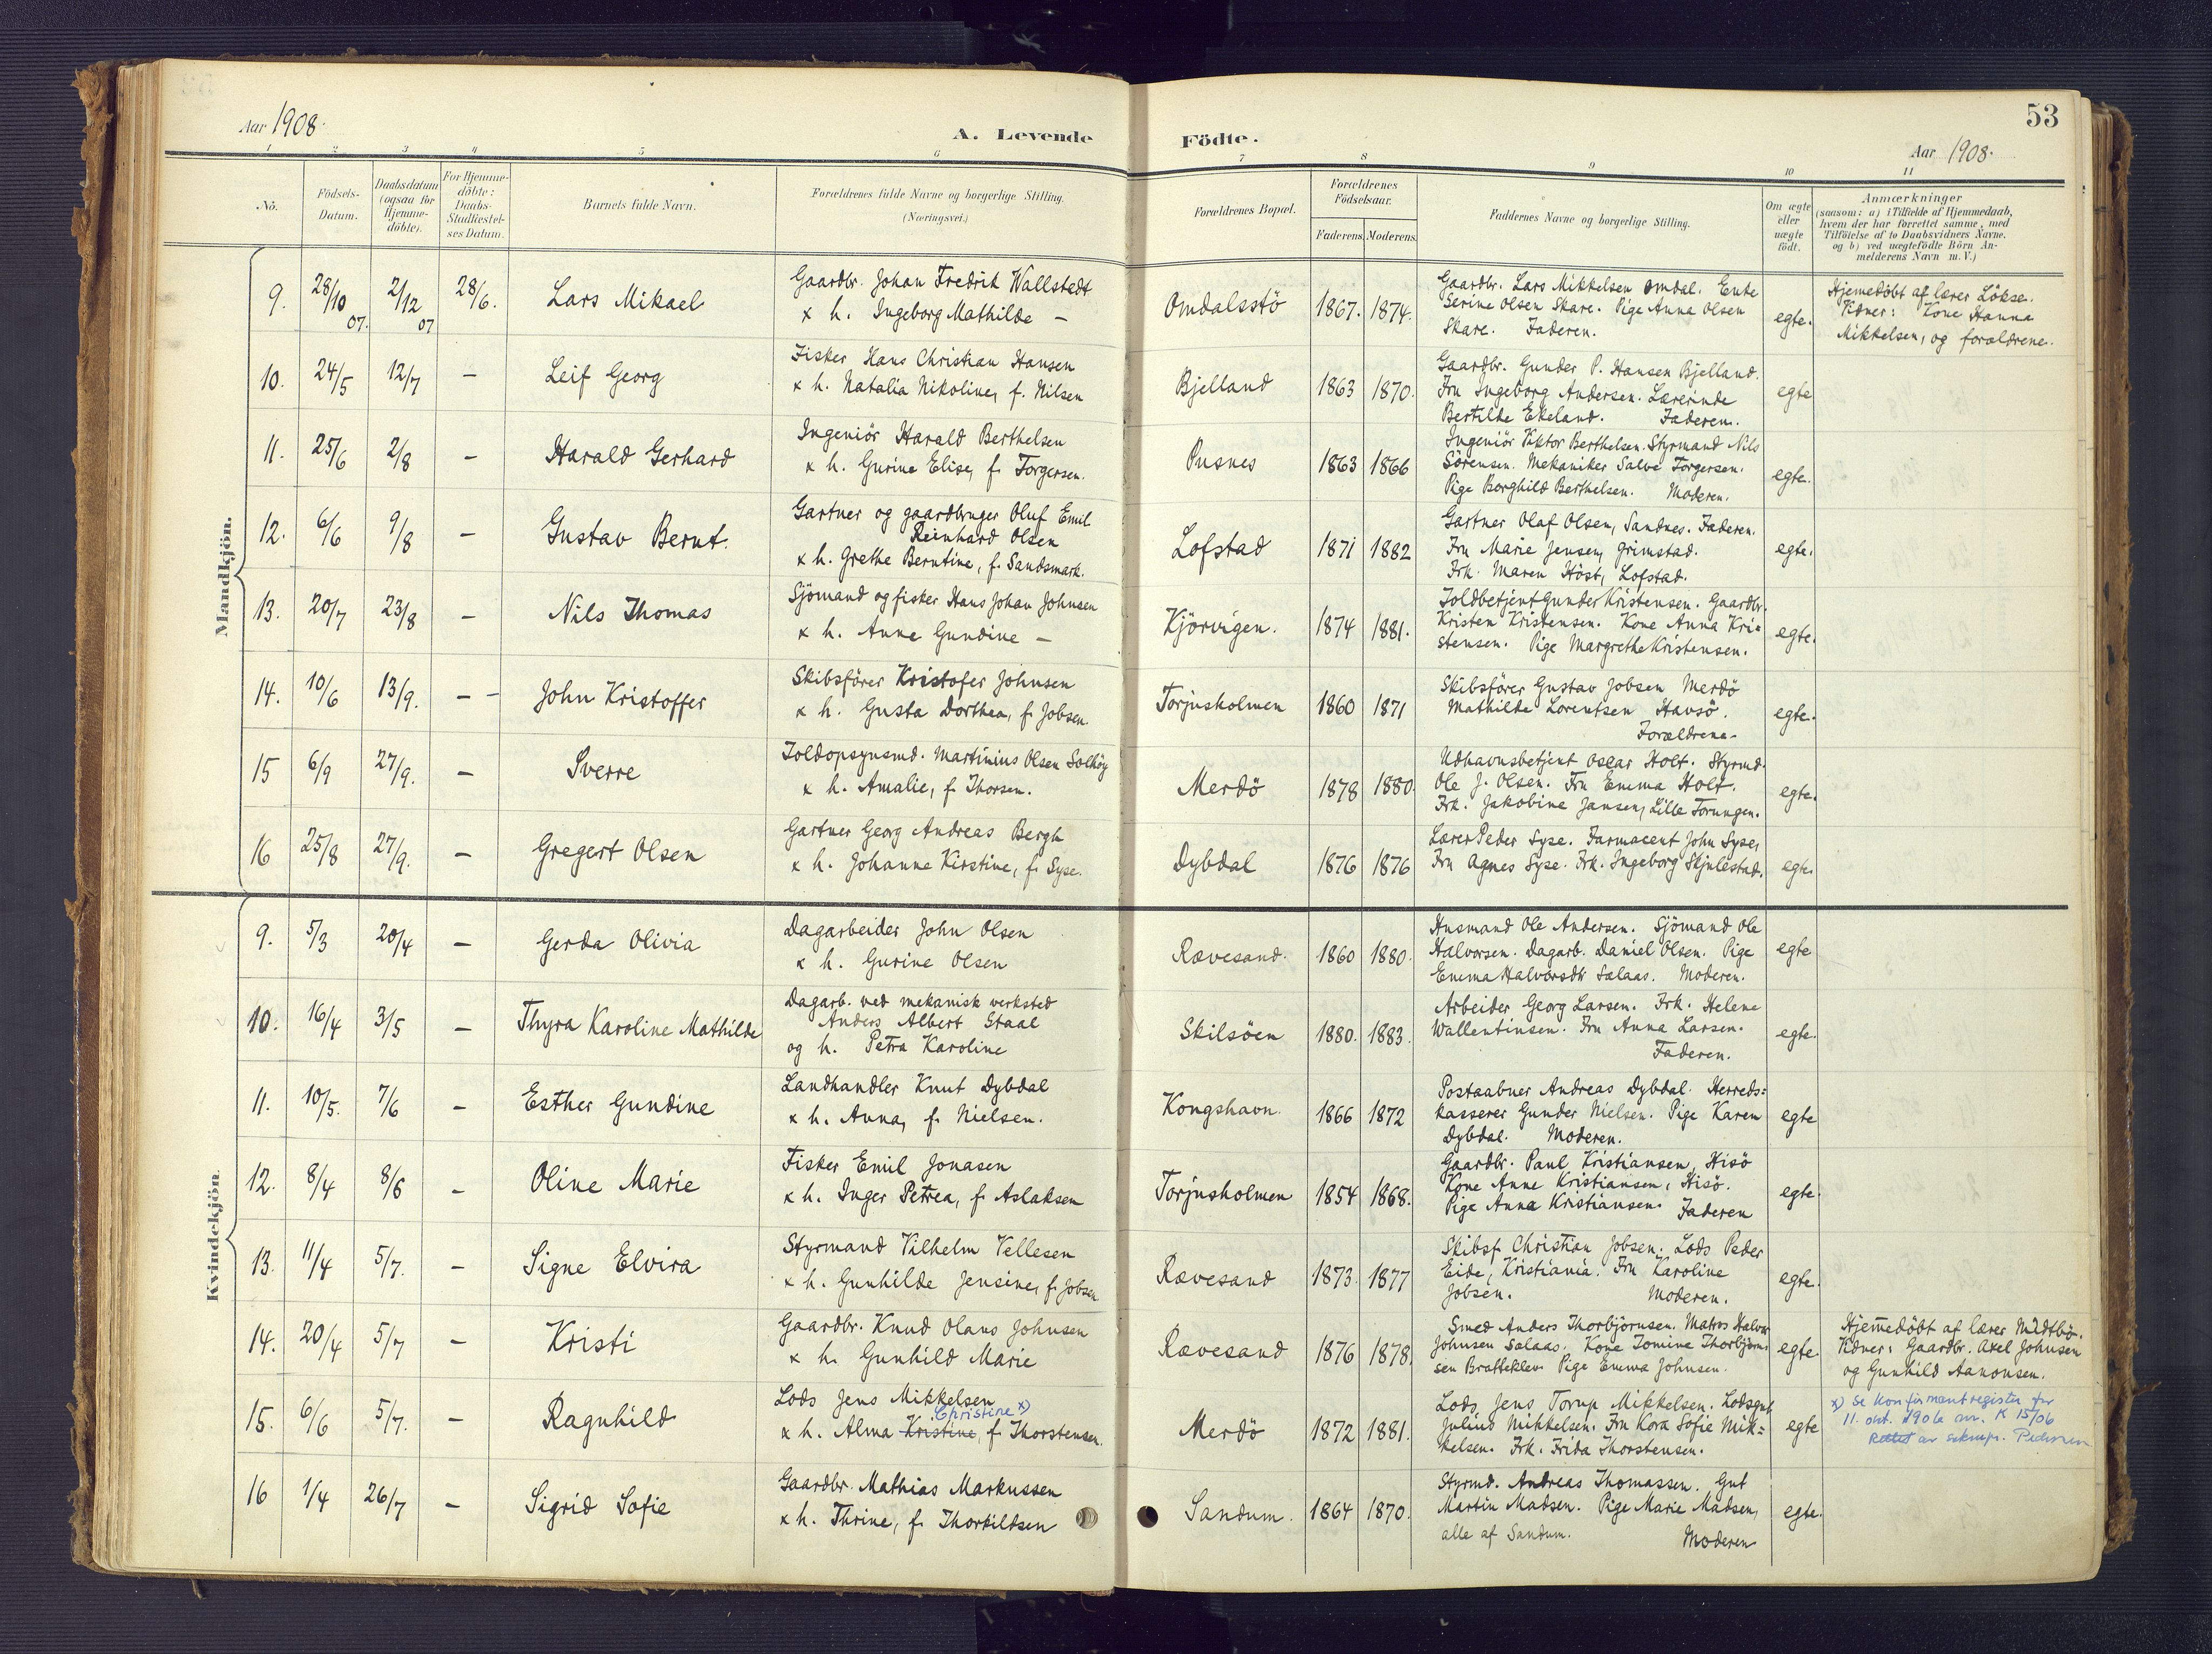 53
Aar 1908.
A. Levende Födte.
Aar 1908.
1 2 3 4 5 6 7 8 9 10 11
No.
Födsels-Datum.
Daabsdatum (ogsaa for Hjemme-döbte).
For Hjemme-döbte: Daabs-Stadfæstel-ses Datum.
Barnets fulde Navn.
Forældrenes fulde Navne og borgerlige Stilling. (Næringsvei.)
Forældrenes Bopæl.
Forældrenes Födselsaar.
Faderens. Moderens.
Faddernes Navne og borgerlige Stilling.
Om ægte eller uægte födt.
Anmærkninger
(saasom: a) i Tilfælde af Hjemmedaab,
hvem der har forrettet samme, med
Tilföielse af to Daabsvidners Navne.
og b) ved uægtefödte Börn An-
melderens Navn m. V.)
Mandkjön.
9. 28/10 07. 2/12 07 28/6. Lars Mikael
Gaardbr. Johan Fredrik Wallstedt
x h. Ingeborg Mathilde –
Omdalsstö 1867. 1874.
Gaardbr. Lars Mikkelsen Omdal. Enke
Serine Olsen Skare. Pige Anna Olsen
Skare. Faderen.
egte.
Hjemedöbt af lærer Lökse.
Vidner: Kone Hanna
Mikkelsen, og forældrene.
10. 24/5 12/7 – Leif Georg
Fisker Hans Christian Hansen
x h. Natalia Nikoline, f. Nilsen
Bjelland 1863 1870.
Gaardbr. Gunder P. Hansen Bjelland.
Fru Ingeborg Andersen. Lærerinde
Bertilde Ekeland. Faderen.
egte
11. 25/6 2/8 – Harald Gerhard
Ingeniör Harald Berthelsen
x h. Gurine Elise, f. Torgersen.
Pusnes 1863 1866
Ingeniör Viktor Berthelsen. Styrmand Nils
Sörensen. Mekaniker Salve Torgersen.
Pige Borghild Berthelsen. Moderen.
egte.
12. 6/6 9/8 – Gustav Bernt.
Gartner og gaardbruger Oluf Emil
Reinhard Olsen
x h. Grethe Berntine, f. Sandsmark.
Lofstad 1871 1882
Gartner Olaf Olsen, Sandnes. Faderen.
Fru Marie Jensen, Grimstad.
Frk. Maren Höst, Lofstad.
egte.
13. 20/7 23/8 – Nils Thomas
Sjömand og fisker Hans Johan Johnsen
x h. Anne Gundine –
Kjörvigen. 1874 1881.
Toldbetjent Gunder Kristensen. Gaardbr.
Kristen Kristensen. Kone Anna Kri=
stensen. Pige Margrethe Kristensen.
egte.
14. 10/6 13/9. – – John Kristoffer
Skibsförer Kristofer Johnsen
x h. Gusta Dorthea, f. Jobsen
Torjusholmen 1860 1871
Skibsförer Gustav Jobsen Merdö
Mathilde Lorentsen Havsö.
Forældrene.
egte.
15 6/9 27/9. – Sverre
Toldopsynsmd. Martinius Olsen Solhöy
x h. Amalie, f. Thorsen.
Merdö 1878 1880.
Udhavnsbetjent Oscar Holt. Styrmd.
Ole J. Olsen. Fru Emma Holt.
Frk. Jakobine Jansen, Lille Torungen.
egte.
16 25/8 27/9. – Gregert Olsen
Gartner Georg Andreas Bergh
x h. Johanne Kirstine, f. Syse.
Dybdal 1876 1876
Lærer Peder Syse. Farmaceut John Syse,
Fru Agnes Syse. Frk. Ingeborg Skjulestad.
egte.
Kvindekjön.
9. 5/3 20/4 – Gerda Olivia
Dagarbeider John Olsen
x h. Gurine Olsen
Rævesand. 1860 1880.
Husmand Ole Andersen. Sjömand Ole
Halvorsen. Dagarb. Daniel Olsen. Pige
Emma Halvorsdtr Salaas. Moderen.
egte
10. 16/4 3/5 – Thyra Karoline Mathilde
Dagarb. ved mekanisk verksted
Anders Albert Staal
og h. Petra Karoline
Skilsöen 1880. 1883.
Arbeider Georg Larsen. Frk. Helene
Wallentinsen. Fru Anna Larsen.
Faderen.
egte.
11. 10/5. 7/6 – Esther Gundine
Landhandler Knut Dybdal
x h. Anna, f. Nielsen.
Kongshavn. 1866 1872
Postaabner Andreas Dybdal. Herreds=
kasserer Gunder Nielsen. Pige Karen
Dybdal. Moderen.
egte
12. 8/4 8/6 – Oline Marie
Fisker Emil Jonasen
x h. Inger Petrea, f. Aslaksen
Torjusholmen 1854 1868.
Gaardbr. Paul Kristiansen, Hisö
Kone Anne Kristiansen, Hisö.
Pige Anna Kristiansen. Faderen
egte.
13. 11/4 5/7. – Signe Elvira
Styrmand Vilhelm Vellesen
x h. Gunhilde Jensine, f. Jobsen
Rævesand 1873. 1877
Skibsf. Christian Jobsen. Lods Peder
Eide, Kristiania. Fru Karoline
Jobsen. Moderen.
egte.
14. 20/4 5/7 – Kristi
Gaardbr. Knud Olaus Johnsen
x h. Gunhild Marie
Rævesand 1876 1878.
Smed Anders Thorbjörnsen. Matros Halvor
Johnsen Salaas. Kone Tomine Thorbjörn=
sen Bratteklev. Pige Emma Johnsen.
egte.
Hjemmedöbt af lærer Midtbö.
Vidner: Gaardbr. Axel Johnsen
og Gunhild Aanonsen.
15. 6/6 5/7. – Ragnhild
Lods Jens Mikkelsen
Christine x)
x h. Alma Kristine, f. Thorstensen.
Merdö 1872 1881.
Lods Jens Torup Mikkelsen. Lodsgut
Julius Mikkelsen. Fru Kora Sofie Mik=
kelsen. Frk. Frida Thorstensen.
egte
x) Se Konfirmantregister for
11. okt. 1906 nr. K 15/06
Rettet av soknepr. Pedersen
16 1/4 26/7 – Sigrid Sofie
Gaardbr. Mathias Markussen
x h. Thrine, f. Thorkildsen
Sandum. 1864 1870.
Styrmd. Andreas Thomassen. Gut
Martin Madsen. Pige Marie Madsen,
alle af Sandum. Moderen
egte.